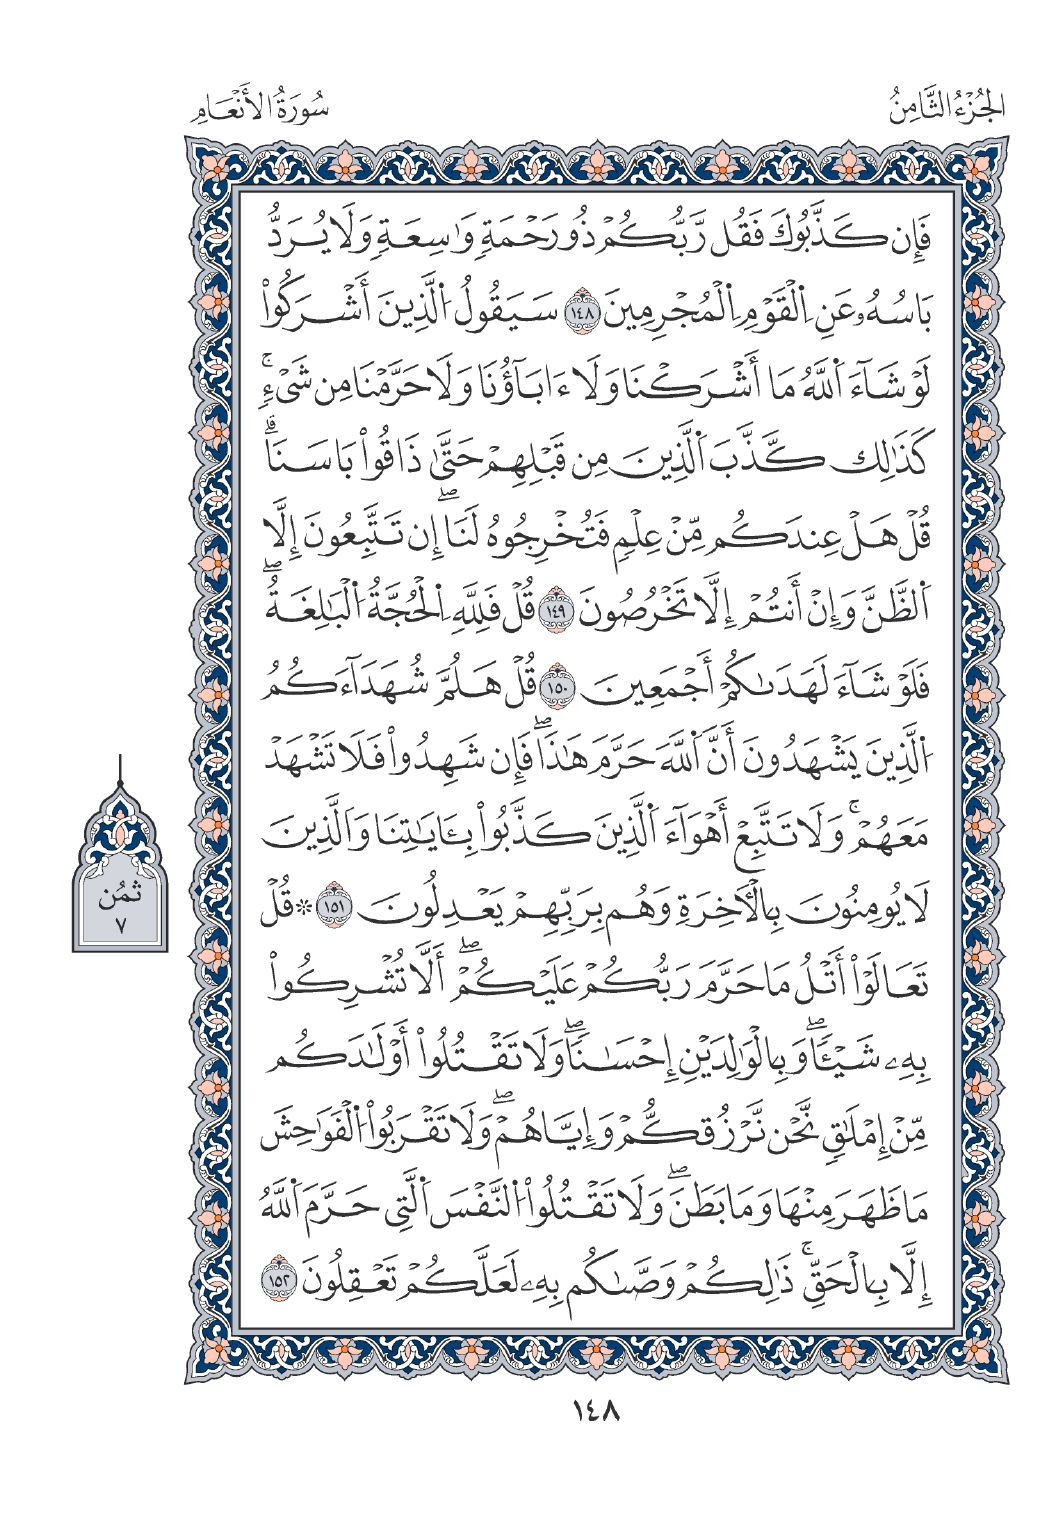 الجُزْءُ الثَّامِنُ
سُورَةُ الأَنْعَامِ
فَإِن كَذَّبُوكَ فَقُل رَّبُّكُمْ ذُو رَحْمَةٖ وَٰسِعَةٖ وَلَا يُرَدُّ
بَاسُهُۥ عَنِ اِ۬لْقَوْمِ اِ۬لْمُجْرِمِينَ ١٤٨ سَيَقُولُ اُ۬لَّذِينَ أَشْرَكُواْ
لَوْ شَآءَ اَ۬للَّهُ مَا أَشْرَكْنَا وَلَا ءَابَآؤُنَا وَلَا حَرَّمْنَا مِن شَيْءٖۚ
كَذَٰلِكَ كَذَّبَ اَ۬لَّذِينَ مِن قَبْلِهِمْ حَتَّىٰ ذَاقُواْ بَاسَنَاۗ
قُلْ هَلْ عِندَكُم مِّنْ عِلْمٖ فَتُخْرِجُوهُ لَنَاۖ إِن تَتَّبِعُونَ إِلَّا
اَ۬لظَّنَّ وَإِنْ أَنتُمْ إِلَّا تَخْرُصُونَ ١٤٩ قُلْ فَلِلَّهِ اِ۬لْحُجَّةُ اُ۬لْبَٰلِغَةُۖ
فَلَوْ شَآءَ لَهَدَىٰكُمْ أَجْمَعِينَ ١٥٠ قُلْ هَلُمَّ شُهَدَآءَكُمُ
اُ۬لَّذِينَ يَشْهَدُونَ أَنَّ اَ۬للَّهَ حَرَّمَ هَٰذَاۖ فَإِن شَهِدُواْ فَلَا تَشْهَدْ
مَعَهُمْۚ وَلَا تَتَّبِعْ أَهْوَآءَ اَ۬لَّذِينَ كَذَّبُواْ بِـَٔايَٰتِنَا وَاَلَّذِينَ
لَا يُومِنُونَ بِالْأٓخِرَةِ وَهُم بِرَبِّهِمْ يَعْدِلُونَ ١٥١ ۞ قُلْ
تَعَالَوْاْ أَتْلُ مَا حَرَّمَ رَبُّكُمْ عَلَيْكُمْۖ أَلَّا تُشْرِكُواْ
بِهِۦ شَيْـٔاٗۖ وَبِالْوَٰلِدَيْنِ إِحْسَٰناٗۖ وَلَا تَقْتُلُواْ أَوْلَٰدَكُم
مِّنْ إِمْلَٰقٖ نَّحْن نَّرْزُقكُّمْ وَإِيَّاهُمْۖ وَلَا تَقْرَبُواْ اُ۬لْفَوَٰحِشَ
مَا ظَهَرَ مِنْهَا وَمَا بَطَنَۖ وَلَا تَقْتُلُواْ اُ۬لنَّفْسَ اَ۬لَّتِي حَرَّمَ اَ۬للَّهُ
إِلَّا بِالْحَقِّۚ ذَٰلِكُمْ وَصَّىٰكُم بِهِۦ لَعَلَّكُمْ تَعْقِلُونَ ١٥٢
ثُمُن
٧
١٤٨